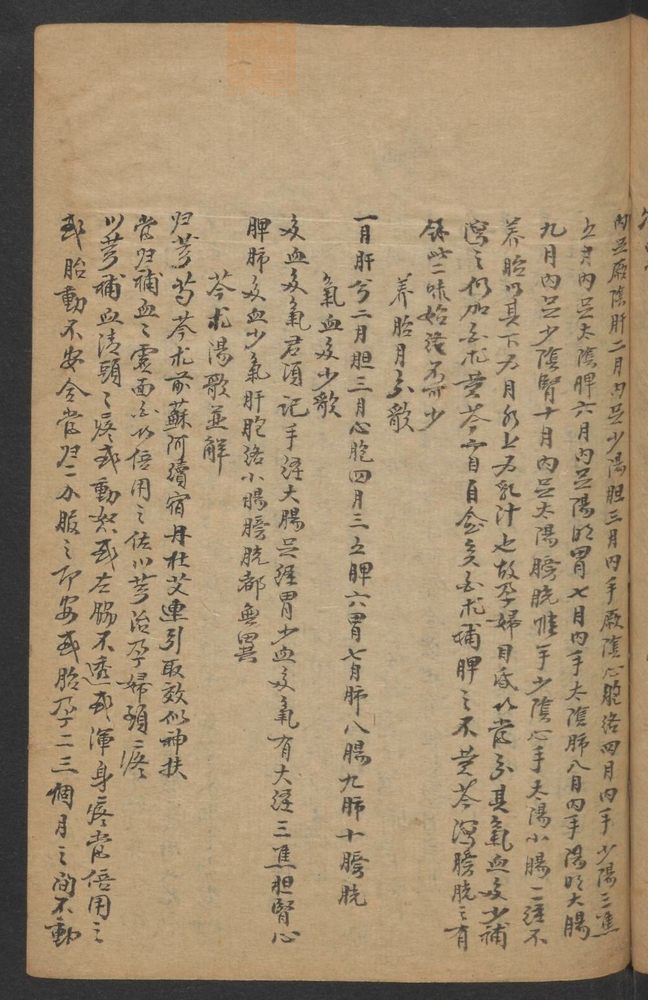 内足厥陰肝二月内足少陽胆三月内手厥陰心胞絡四月内手少陽三焦
五月内足太陰脾六月内足陽明胃七月内手太陰肺八月内手陽明大腸
九月内足少陰腎十月内足太陽膀胱惟手少陰心手太陽小腸二経不
养胎以其下为月水上为乳汁也故孕婦目
瀉之仍加白朮黄芩白朮補脾之不黄芩瀉膀胱之有
餘此二味始终不可少
养胎月分歌
一月肝兮二月胆三月心胞四月三五脾六胃七月肺八腸九肺十膀胱
氣血多少歌
多血多氣君須记手経大腸足経胃少血多氣有六経三焦胆腎心
脾肺多血少氣肝胞络小腸膀胱都無異
芩朮湯歌並解
归芎芍芩朮前蘇阿續宿丹杜艾連引取效似神扶
当归補血之霊面白以倍用之佐川芎治孕婦頭疼
川芎補血清頭之疼或動怒或左脇不遂或渾身疼当倍用之
或胎動不安全当归二分服之即安或胎孕二三個月之間不動